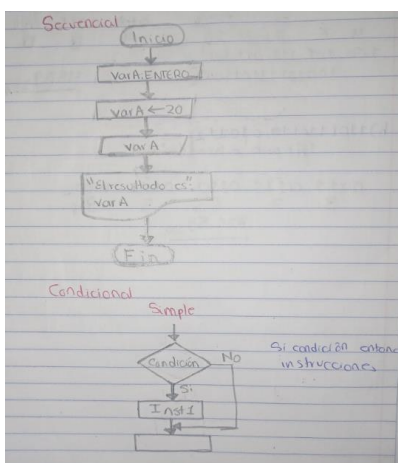 Secuencial
Inicio
varA:ENTERO
varA ← 20
varA
"El resultado es":
varA
Fin
Condicional
Simple
Condición
No
Si condición entonc
instrucciones
Si
Inst1